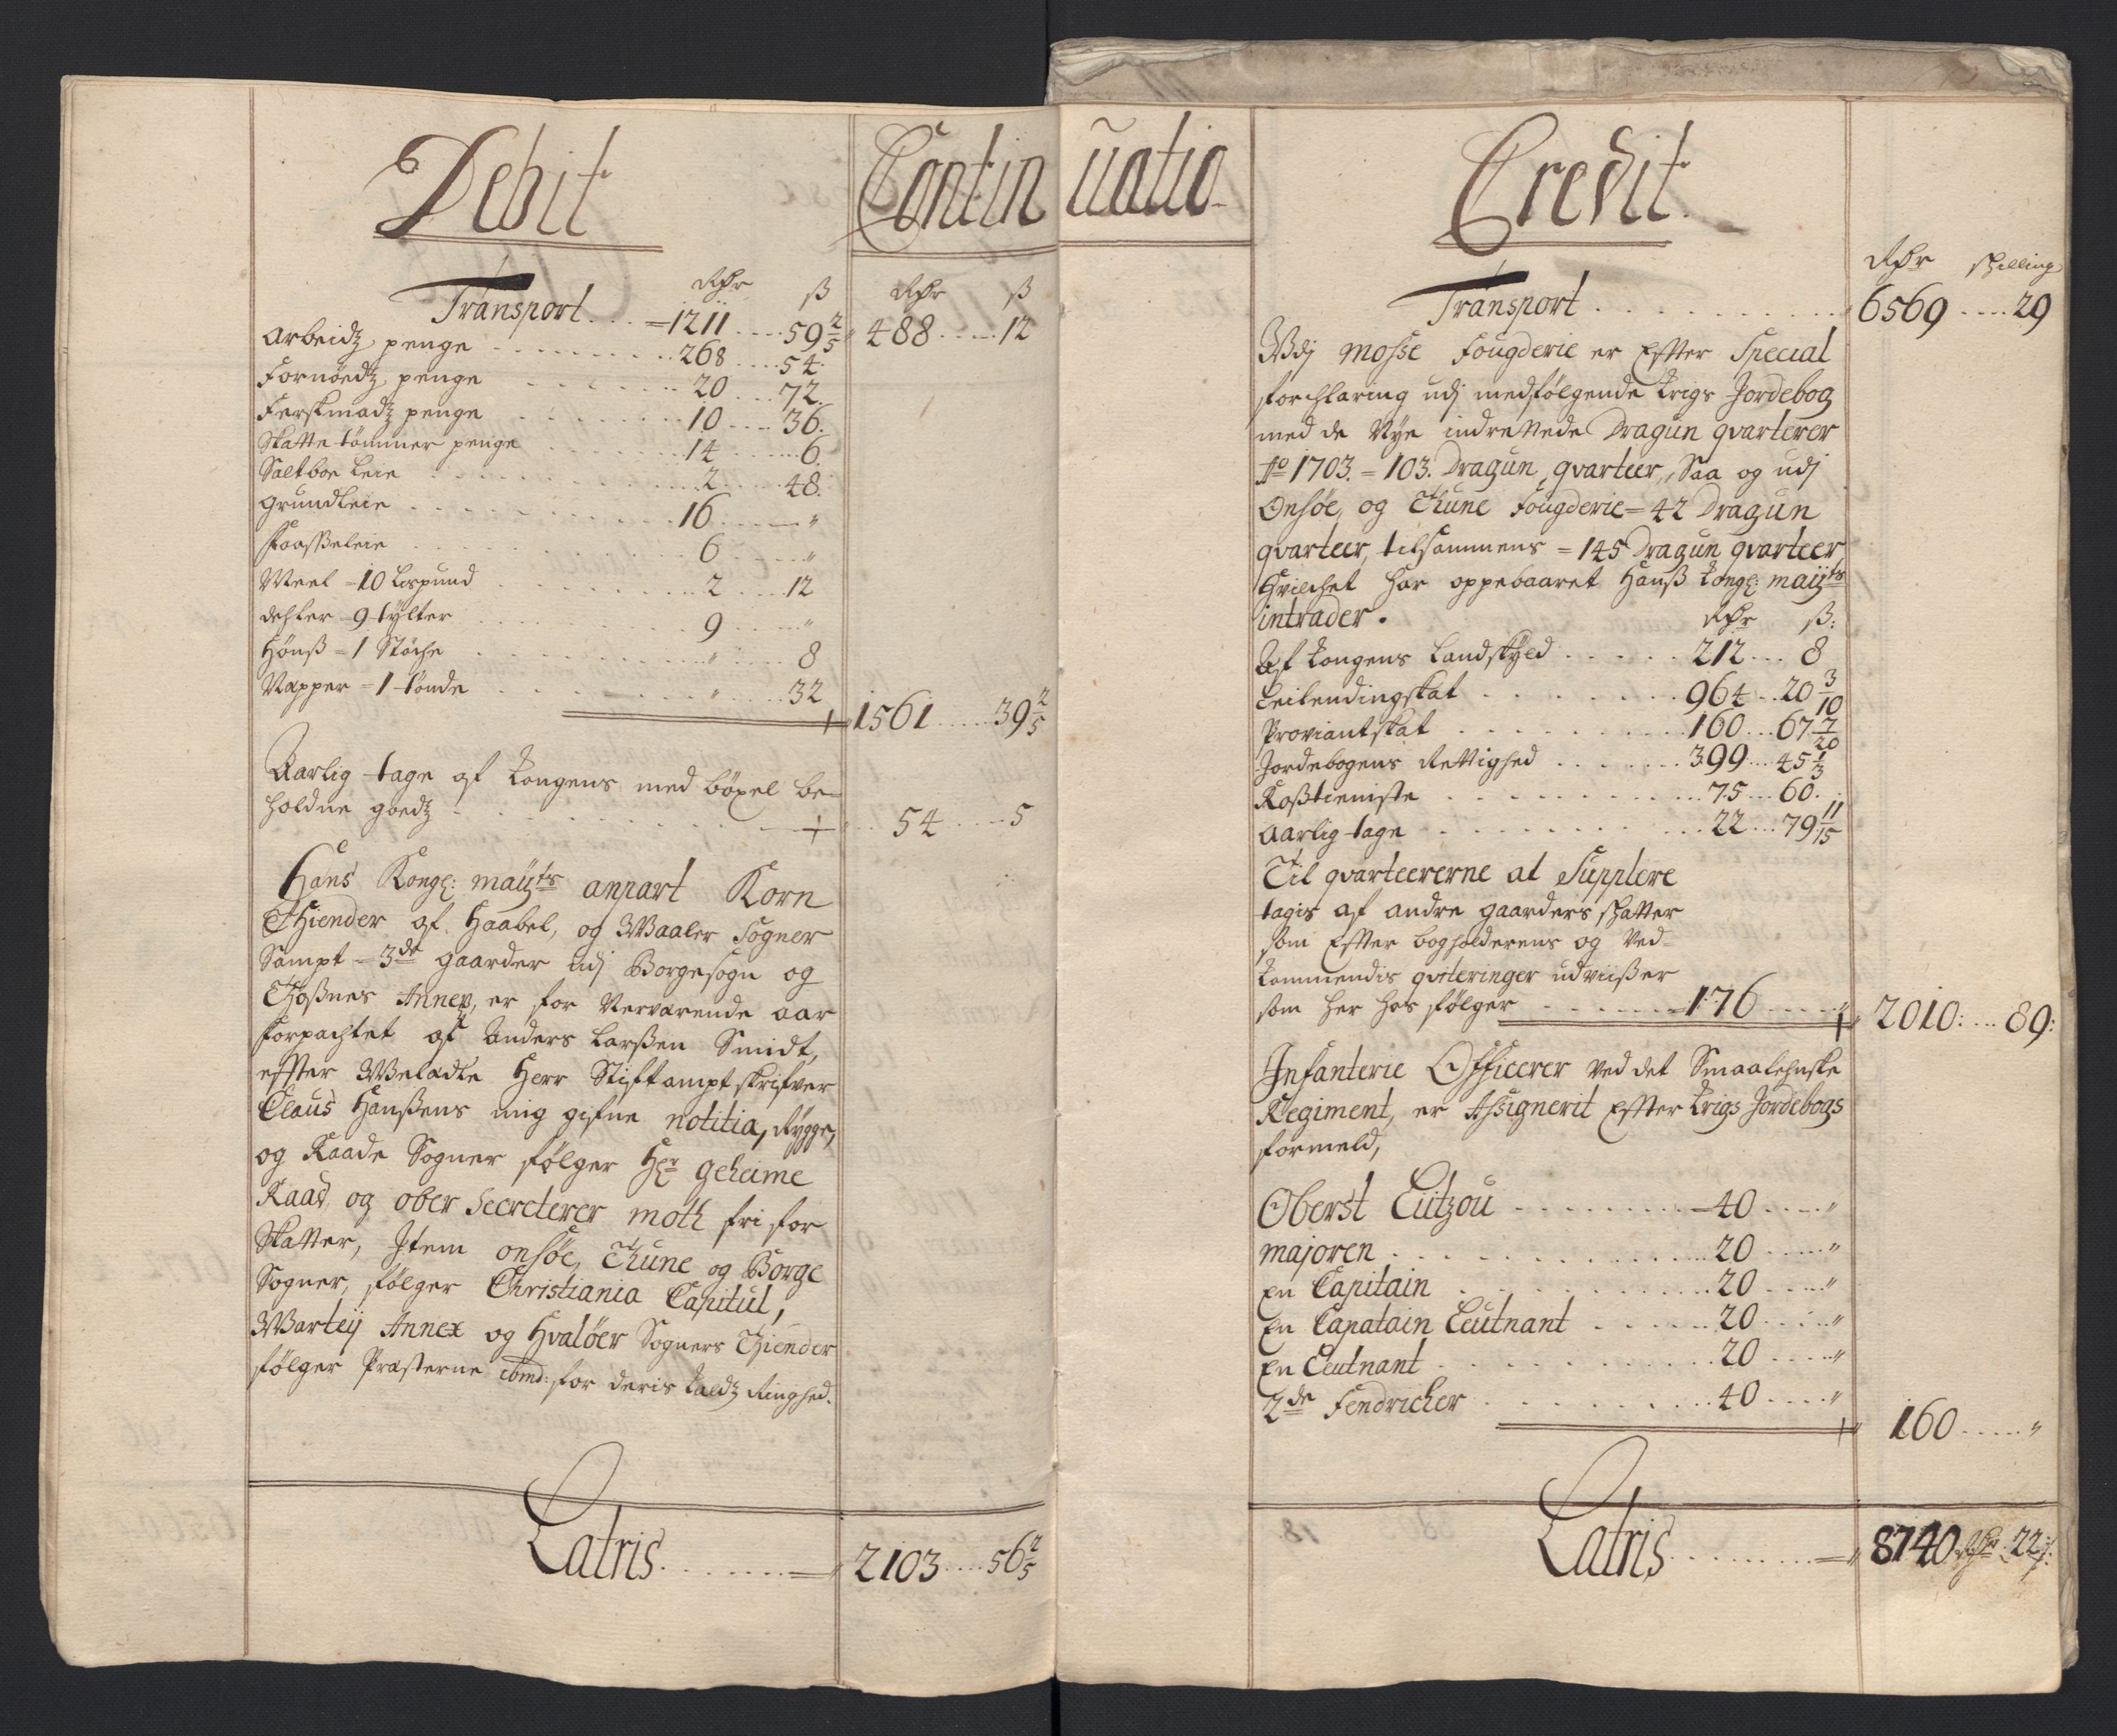 Debit
Continuatio
Rdr ß Rdr ß
Transport . . . = 1211 . . . . 59 2/5 488 . . . . 12
Arbeidtz penge . . . . 268 . . . . 54.
Fornödtz penge . . . . 20 . . . . 72.
Ferskmadtz penge . . . . 10 . . . . 36.
Skatte tömmer penge . . . . 14 . . . . 6.
Saltboe Leie . . . . 2 . . . . 48.
Grundleie . . . . 16 . . . . "
. . . . 6 . . . . "
Meel = 10 Lispund . . . . 2 . . . . 12
Dehler = 9 tylter . . . . 9 . . . . "
Hönß = 1 Støche . . . . " . . . . 8
Næpper = 1 tønde . . . . " . . . . 32
1561 . . . . 39 2/5
Aarlig tage af Kongens med böxel be-
holdne goedtz . . . . 54 . . . . 5
Hans Kongl: mayts anpart Korn
Thiender af Haabel, og Waaler Sogner
Sampt = 3de gaarder udj Borgesogn og
Thoßnes Annex, er for Nerværende aar
forpachtet af Anders Larßen Smidt,
effter Welædle Herr Stiftamptskrifver
Claus Hanßens mig gifne notitia, Rygge,
og Raade Sogner følger Hr geheime
Raad, og ober Secreterer moth fri for
Skatter, Item onsöe, Thune og Borge
Sogner, følger Christiania Capitul,
Warteij Annex og Hvalöer Sogners Thiender
følger Præsterne ibmd: for deris Kaldtz Ringhed.
Latris. . . . . 2103 . . . . 56 2/5
Credit
Rdr skilling
Transport . . . . 6569 . . . . 29
Udj Mosse Fougderie er Efter Special
forchlaring udj medfølgende Krigs Jordebog
med de Nye indrettede Dragun qvarterer
Ao 1703. = 103. Dragun qvarteer, Saa og udj
Onsöe, og Thune Fougderie = 42 Dragun
qvarteer, tilsammens = 145 Dragun qvarteer
Hvilchet har oppebaaret Hanß Kongl: mayts
intrader. Rdr ß:
Af Kongens Landskyld . . . . 212 . . . 8
Leilendingskat . . . . 964 . . . 20 3/10
Proviantskat . . . . 160 . . . 67 7/20
Jordebogens Rettighed . . . . 399 . . . 45 1/3
Roßtieniste . . . . 75 . . . 60.
Aarlig tage . . . . 22 . . . 79 11/15
Til qvarteererne at Supplere
tagis af andre gaarders skatter
som Effter bogholderens og Ved-
kommendis qviteringer udviißer
som her hos følger . . . . = 176 . . . . " 2010: . . . 89:
Infanterie Officerer ved det Smaalehnske
Regiment, er Assignerit Effter Krigs Jordebogs
formeld,
Oberst Lützou . . . . 40 . . . . "
majoren . . . . 20 . . . . "
En Capitain . . . . 20 . . . . "
En Capatain Leutnant . . . . 20 . . . . "
En Leutnant . . . . 20 . . . . "
2de Fendricher . . . . 40 . . . . "
160 . . . . "
Latris . . . . 8740 Rdr 22 ß: